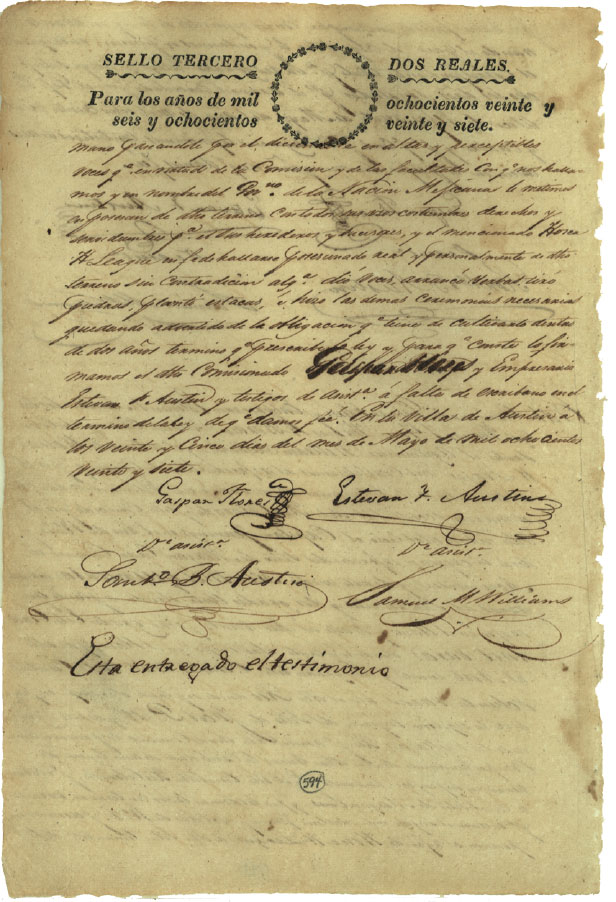 SELLO TERCERO
DOS REALES.
Para los años de mil
seis y ochocientos
ochocientos veinte y
veinte y siete.
mano y dandole por el
voces qe. en virtud de la Comision y de las facultades Con qe. nos halla-
mos y en nombre del de la Nacion Mejicana le metemos
en posecion de dho terreno Con todos sus usos costumbres derechos y
servidumbres pa. el sus herederos y y el mencionado Hosea
H League de hallarse Posecionado real y personalmente de dho
terreno sin Contradicion alga. dió Voces, arrancó Yerbas, tiró
Piedras, Plantó estacas, é hizo las demas Ceremonias necesarias
quedando advertido de la obligacion qe. tiene de cultivarlo dentro
de dos años termino qe. prescribe la ley y para qe. conste lo fir-
mamos el dho Comisionado y Empresario
Estevan F. Austin y testigos de asista. á falta de escribano en el
termino de la Ley de qe. damos fé. En la Villa de Austin á
los Veinte y Cinco dias del mes de Mayo de mil ochocientos
Veinte y siete.
Gaspar Flores
Estevan F. Austin
De asista.
De asista.
B. Austin
Samuel M. Williams
Esta entregado el testimonio
594